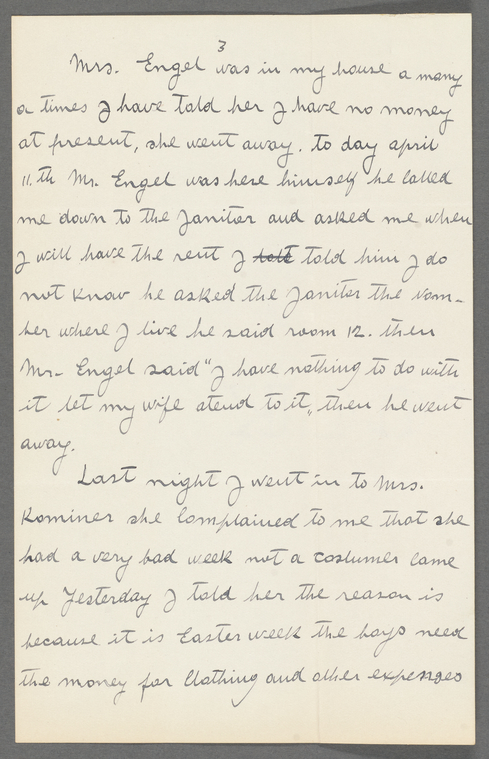 3
Mrs. Engel was in my house a many
a times I have told her I have no money
at present, she went away. to day april
11.th Mr. Engel was here himself he called
me down to the Janitor and asked me when
I will have the rent I told told him I do
not know he asked the Janitor the Nom-
ber where I live he said room 12. then
Mr. Engel said "I have nothing to do with
it let my wife atend to it," then he went
away.
Last night I went in to Mrs.
Kominer she complained to me that she
had a very bad week not a costumer came
up Yesterday I told her the reason is
because it is Easter week the boys need
the money for Clothing and other expenses